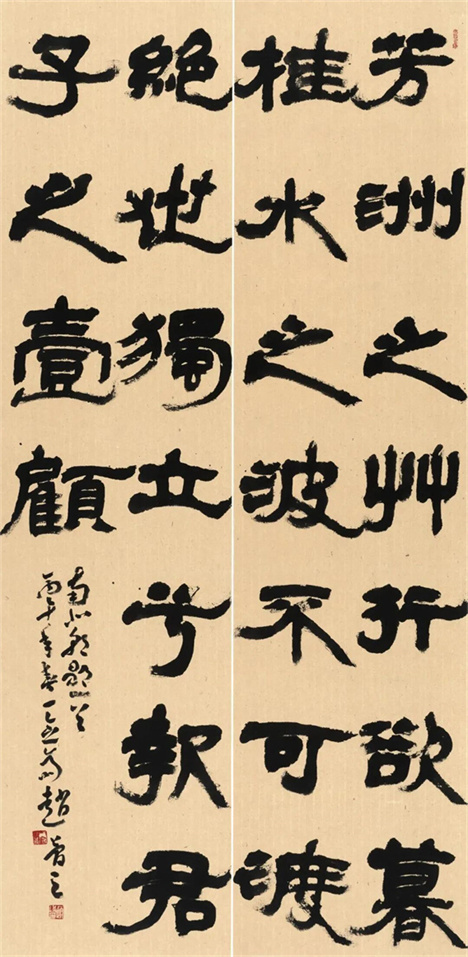 芳洲之艸行欲暮
桂水之波不可渡
絕世獨立兮報君
子之壹顧
南北朝
丙午年春